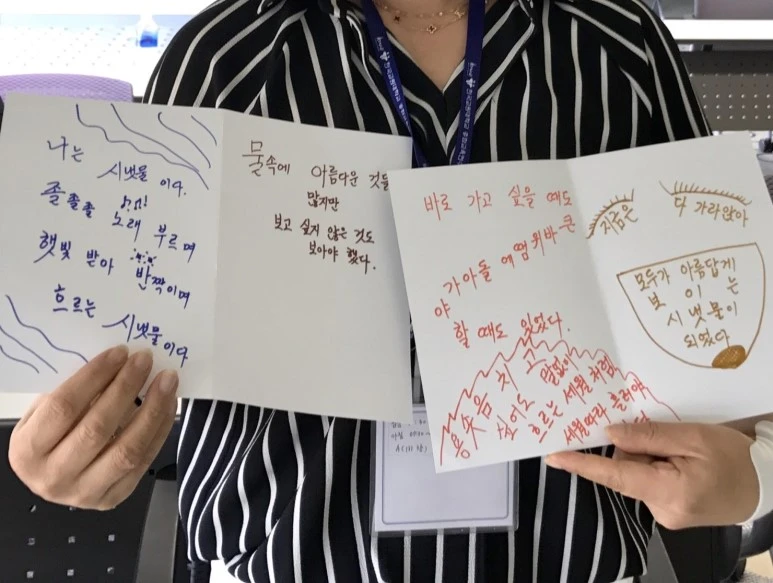 나는 시냇물이다.
졸졸졸 노래 부르며
햇빛 받아 반짝이며
흐르는 시냇물이다
물속에 아름다운 것들
많지만
보고 싶지 않은 것도
보아야 했다.
바로 가고 싶을 때도
큰 바위 땜에 돌아가야
할 때도 있었다.
용솟음 치고
싶어도 말없이
흐르는 세월처럼
세월따라 흘러야
지금은
다 가라앉아
모두가 아름답게
보이는
시냇물이
되었다